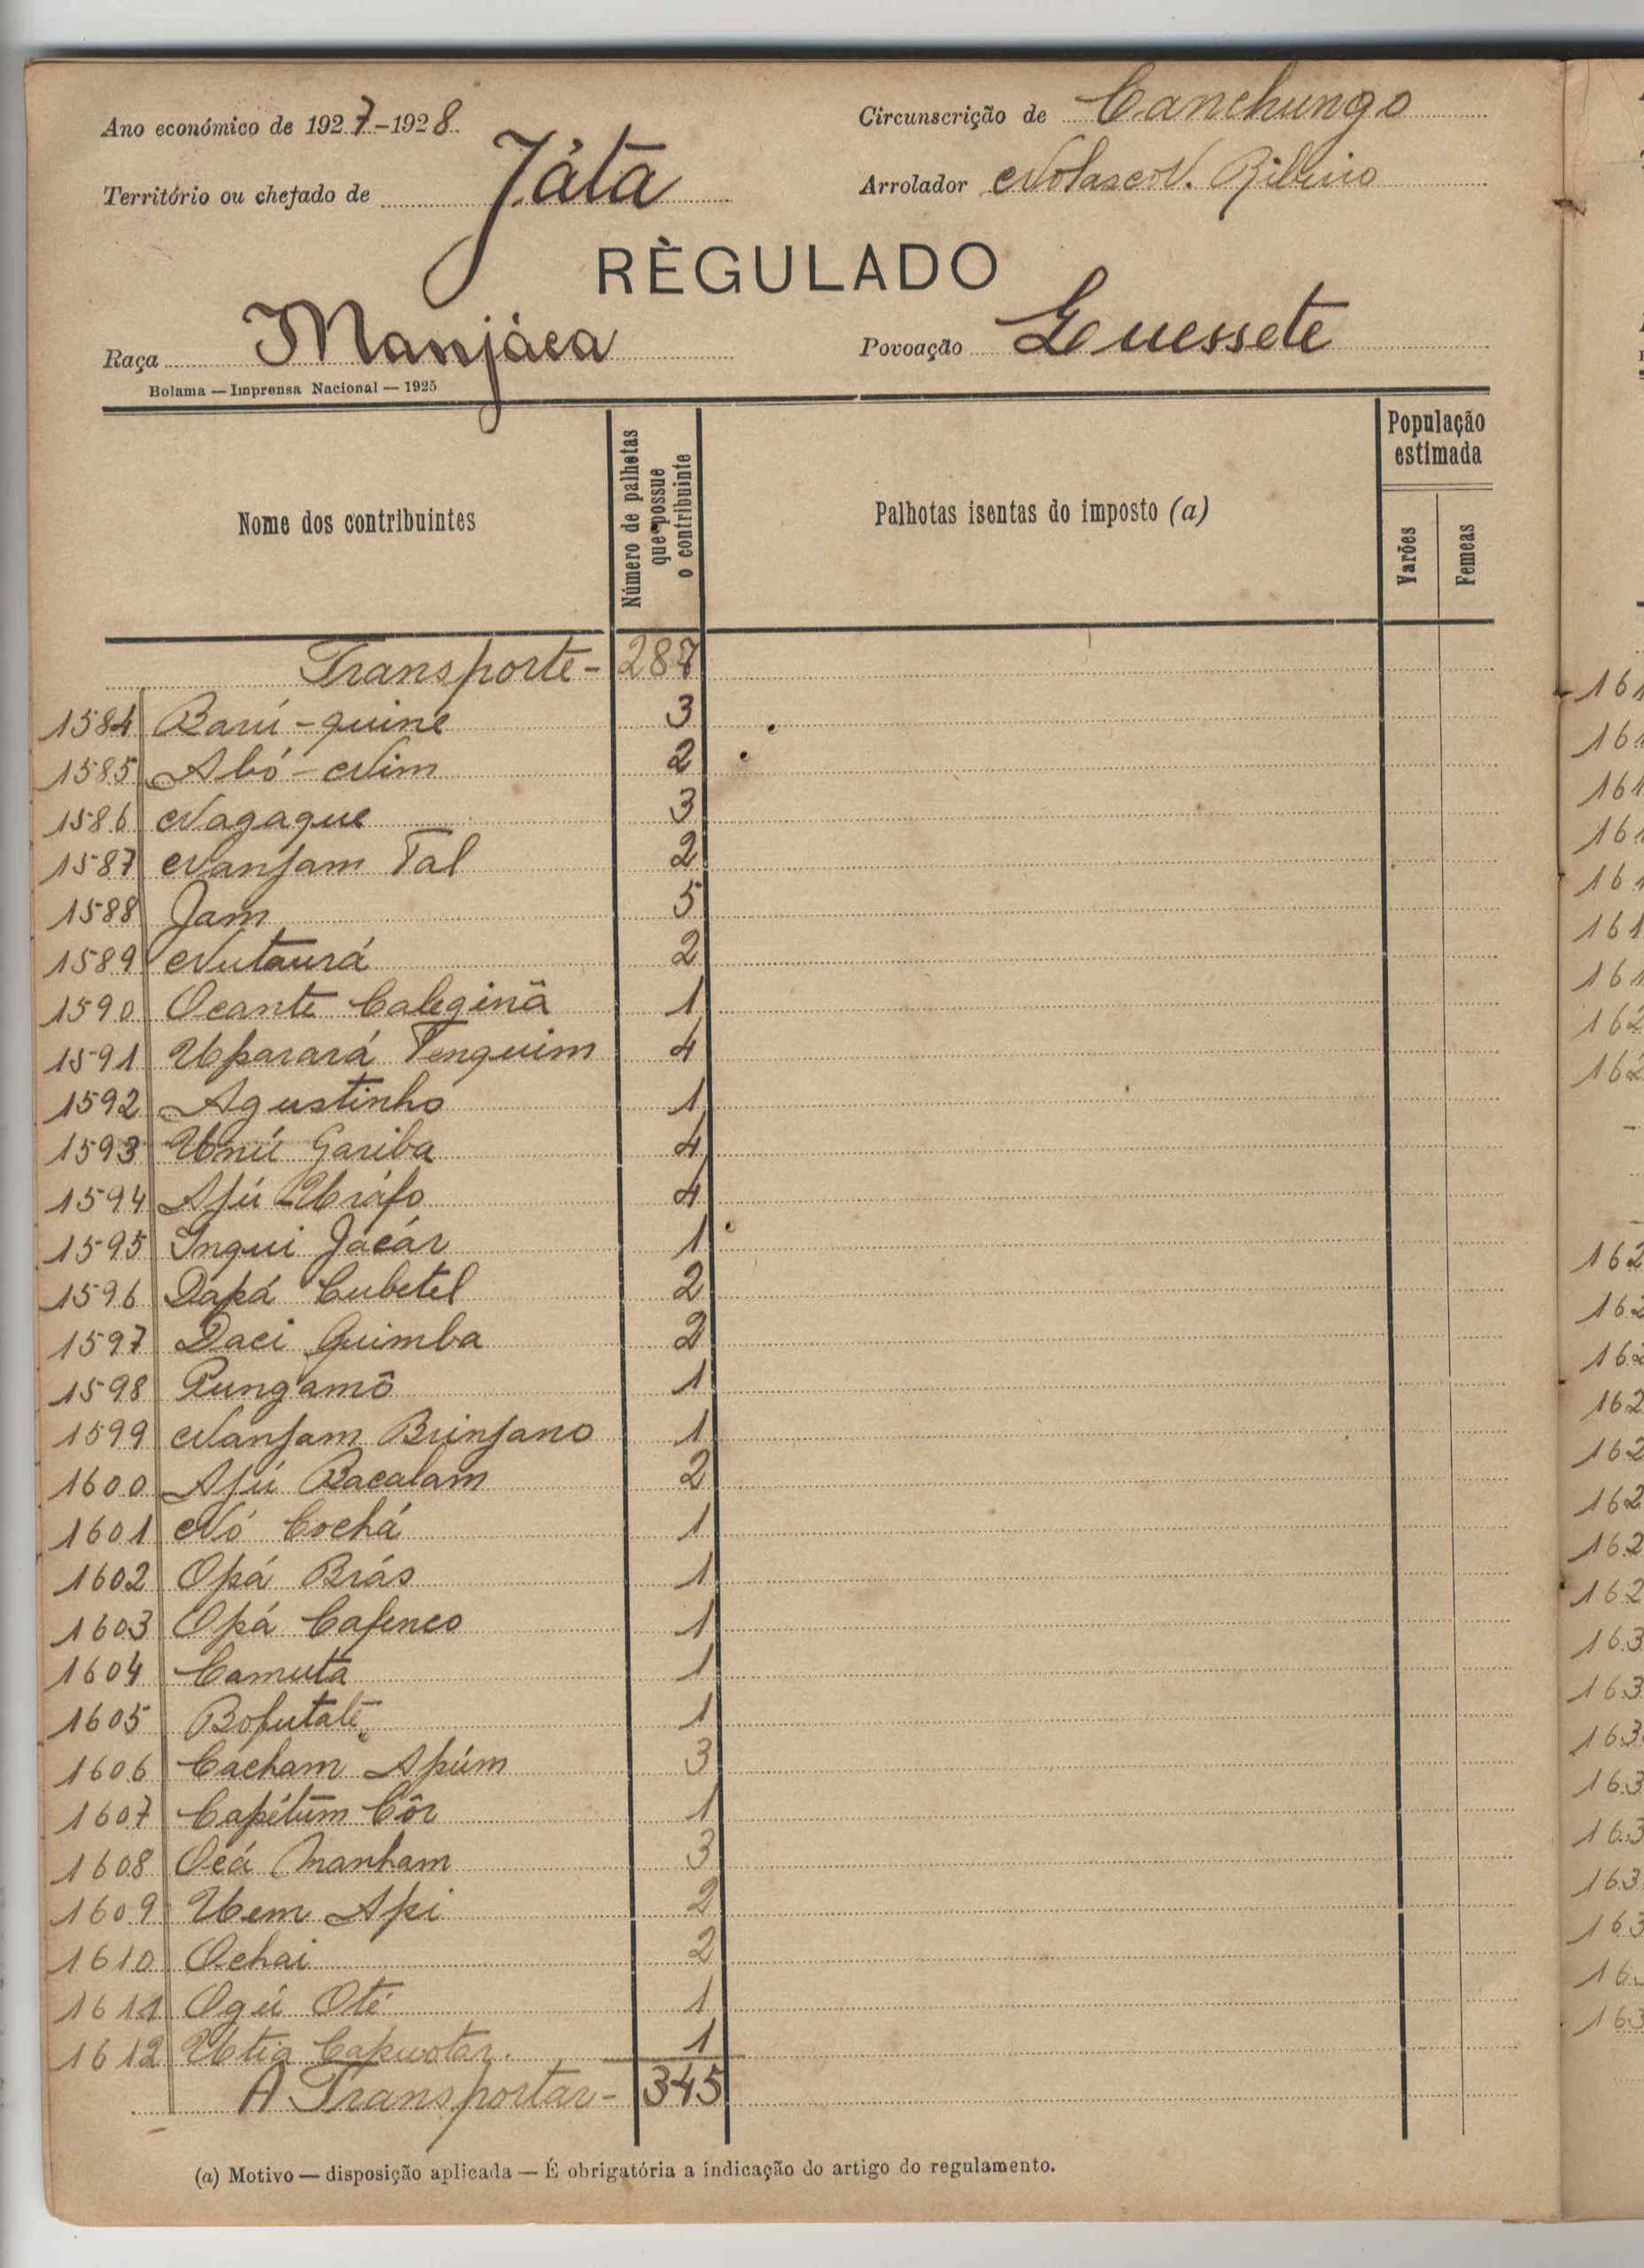 Ano económico de 1927-1928
Circunscrição de Canchungo
Território ou chefado de Játa
Arrolador Nolasco N. Ribeiro
RÈGULADO
Raça Manjáca
Povoação Luessete
Bolama — Imprensa Nacional — 1925
Nome dos contribuintes
Número de palhotas que possue o contribuinte
Palhotas isentas do imposto (a)
População estimada
Varões
Femeas
Transporte - 287
1584 Barú-quine 3
1585 Abó-Nim 2
1586 Nagaque 3
1587 Nanjam Tal 2
1588 Jam 5
1589 Nutaurá 2
1590 Ocante Caleginã 1
1591 Uparará Tenguim 4
1592 Agustinho 1
1593 Unú Gariba 4
1594 Ajú Uráfo 4
1595 Ingui Jácár 1
1596 Dapá Cubetel 2
1597 Daci Quimba 2
1598 Pungamô 1
1599 Nanjam Brinjano 1
1600 Ajú Bacalam 2
1601 Nó Cochá 1
1602 Opá Brás 1
1603 Opá Cafenco 1
1604 Camuta 1
1605 Bofutate 1
1606 Cacham Apúm 3
1607 Capétum Côr 1
1608 Ocá Manham 3
1609 Uem Api 2
1610 Ochai 2
1611 Ogú Oté 1
1612 Utia 1
A Transportar - 345
(a) Motivo — disposição aplicada — É obrigatória a indicação do artigo do regulamento.